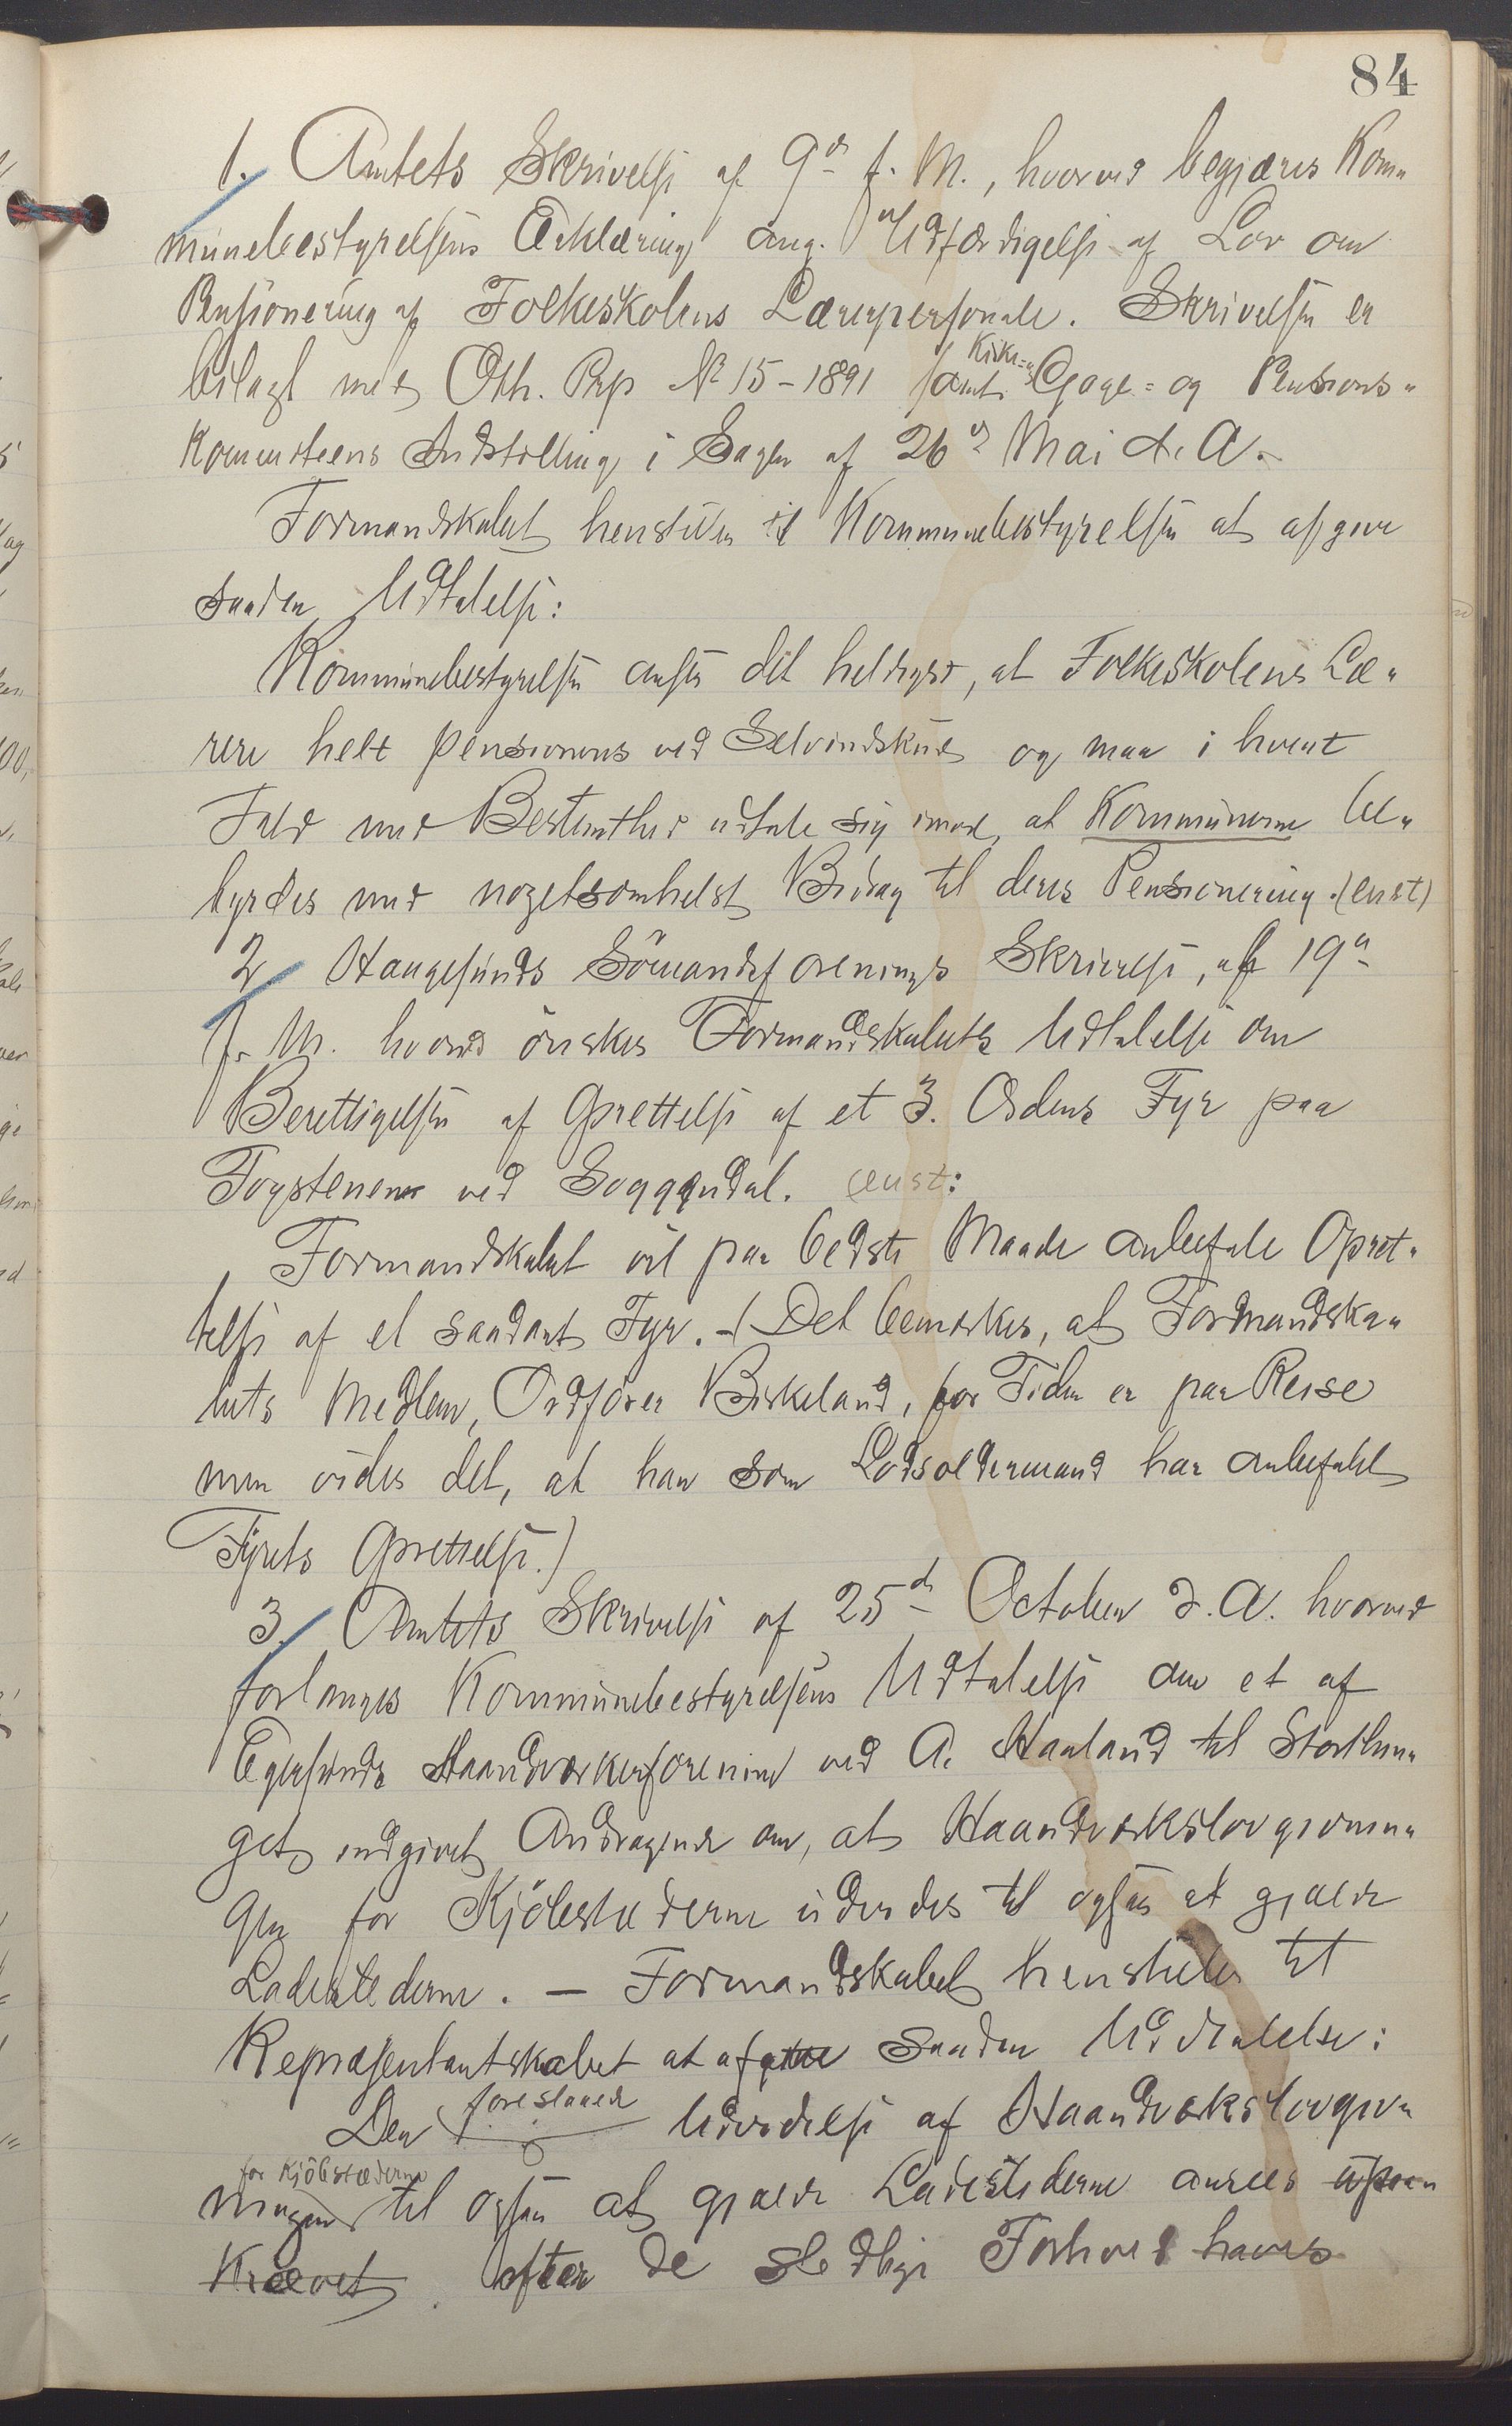 84
1. Amtets Skrivelse af 9de f. M., hvorved begjæres Kom-
munebestyrelsens Erklæring ang. Udfærdigelse af Lov om
Pensionering af Folkeskolens Lærerpersonale. Skrivelsen er
bilagt med Oth. Prp № 15 - 1891 samt Kirke= Gage= og Pensions-
Komiteens Indstilling i Sagen af 26de Mai d. A.
Formandskabet henstiller til Kommunebestyrelsen at afgive
saadan Udtalelse:
Kommunebestyrelsen anser det heldigst, at Folkeskolens Læ-
rere helt pensioneres ved Selvindskud og maa i hvert
Fald med Bestemthed udtale sig imod, at Kommunerne be-
byrdes med nogetsomhelst Bidrag til deres Pensionering. (enst)
2 Haugesunds Sömandsforenings Skrivelse, af 19de
f. M. hvorved önskes Formandskabets Udtalelse om
Berettigelsen af Oprettelse af et 3. Ordens Fyr paa
Fogstenen ved Soggendal. (enst:
Formandskabet vil paa bedste Maade anbefale Opret-
telse af et saadant Fyr. - (Det bemerkes, at Formandska-
bets Medlem, Ordförer Birkeland, for Tiden er paa Reise
men vides det, at han som Lodsoldermand har anbefalet
Fyrets Oprettelse.)
3. Amtets Skrivelse af 25de October d. A. hvorved
forlanges Kommunebestyrelsens Udtalelse om et af
Egersunds Haandværkerforening ved A. Haaland til Storthin-
get indgivet Andragende om, at Haandværkslovgivnin-
gen for Kjöbstæderne udvides til ogsaa at gjælde
Ladestederne. — Formandskabet henstiller til
Repræsentantskabet at afgive saadan Udtalelse:
Den foreslaaede Udvidelse af Haandværkslovgiv-
ningen for Kjöbstæderne til ogsaa at gjælde Ladestederne ansees upaa-
krævet efter de stedlige Forhold haves